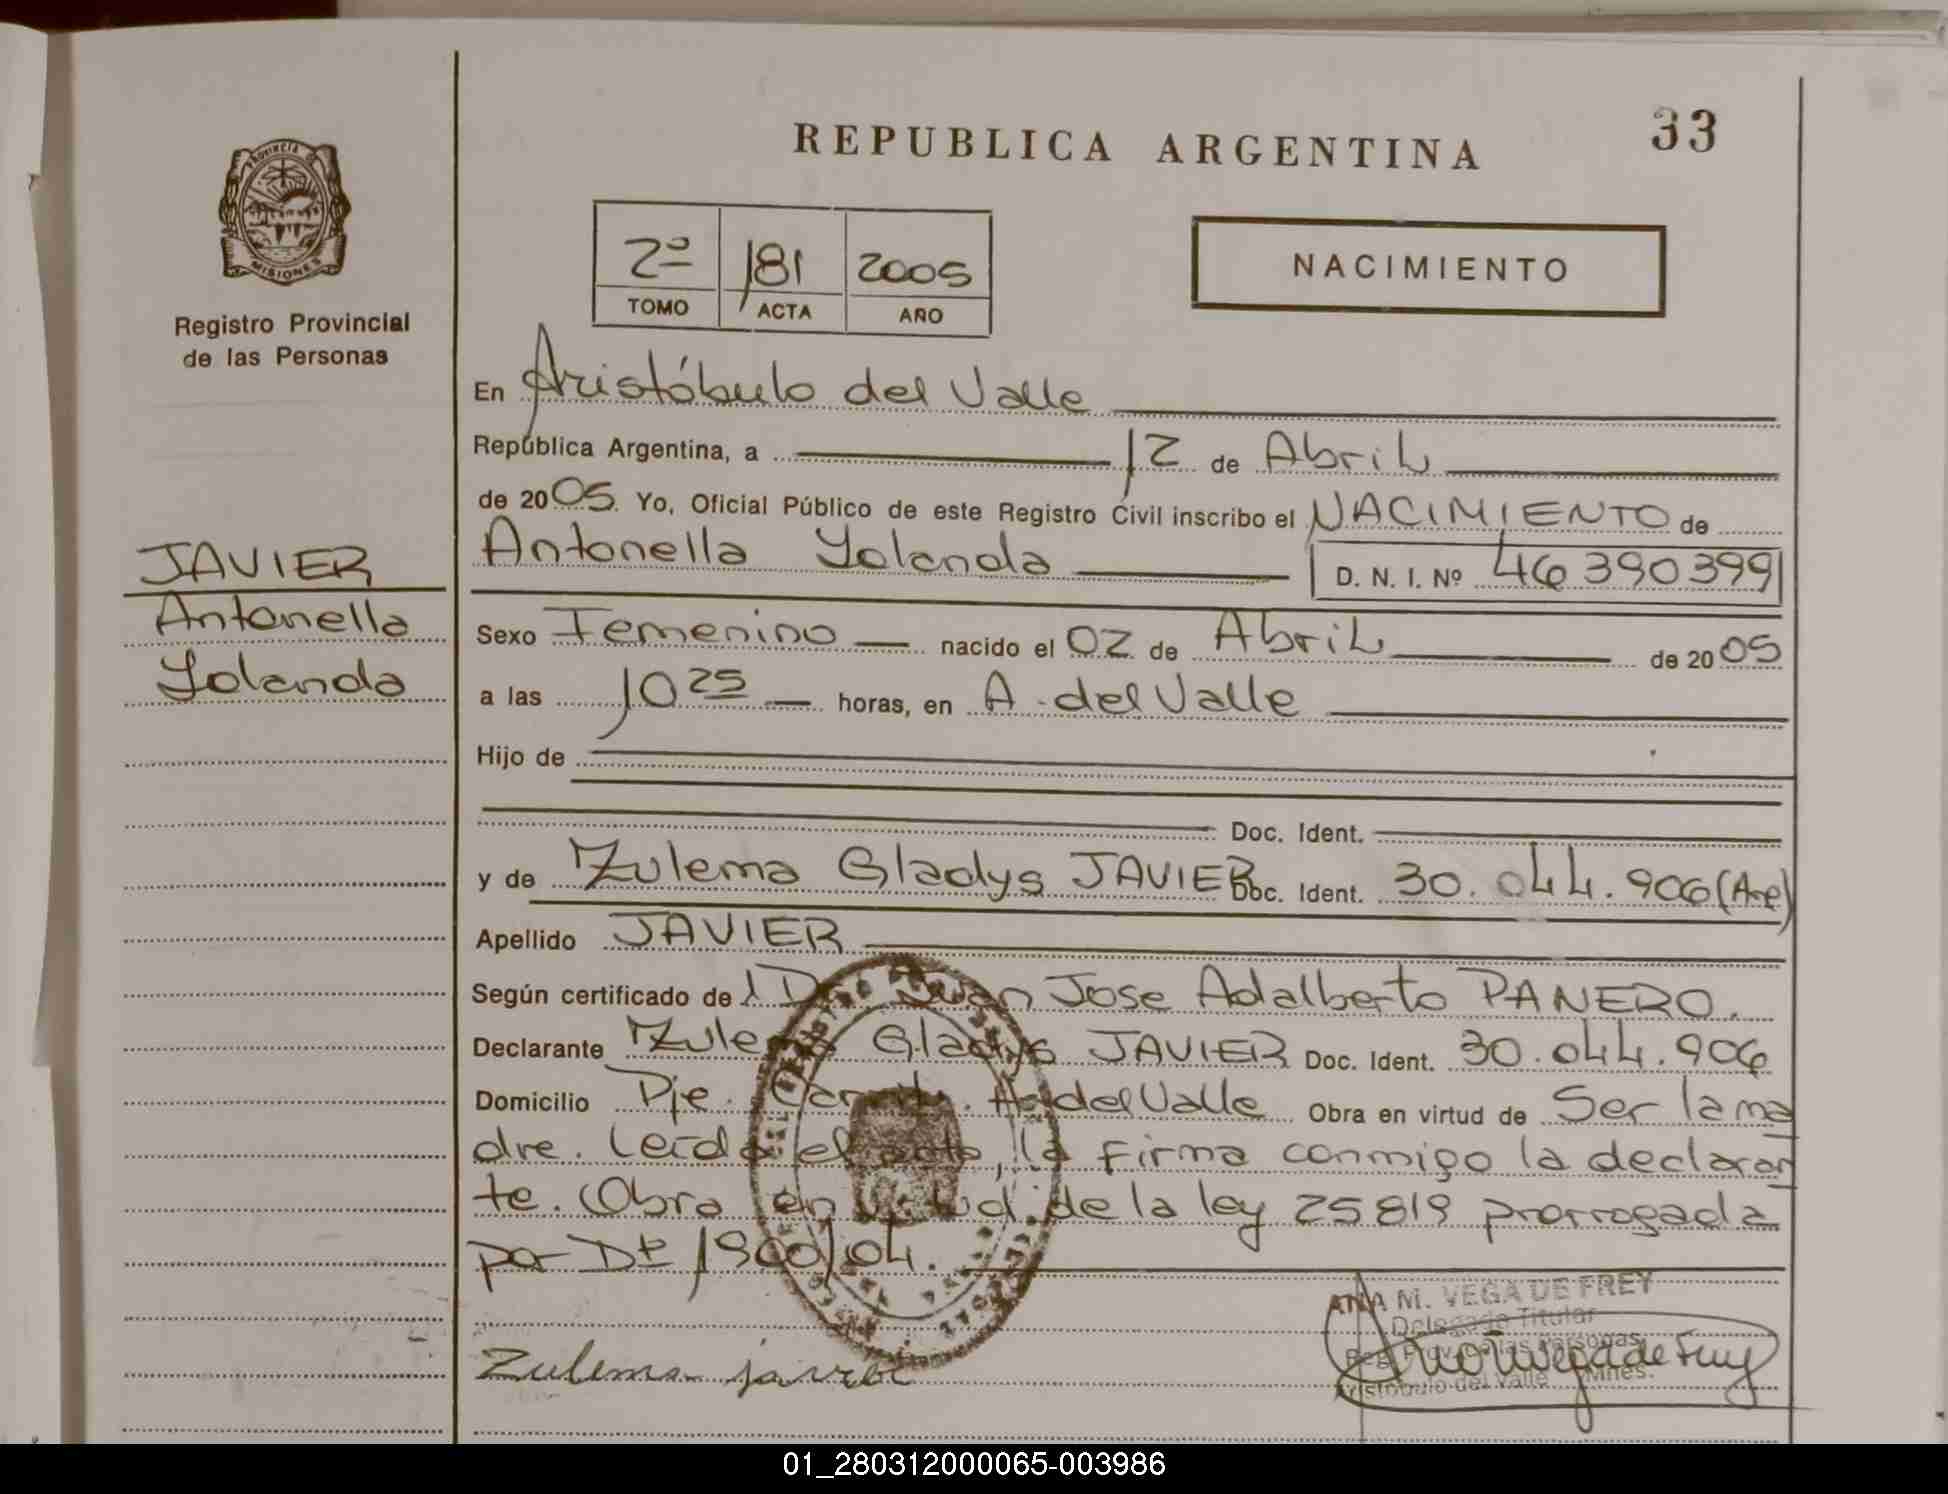 REPUBLICA ARGENTINA
33
PROVINCIA DE
MISIONES
Registro Provincial
de las Personas
2º 181 2005
TOMO ACTA AÑO
NACIMIENTO
En Aristóbulo del Valle
República Argentina, a 12 de Abril
de 2005. Yo, Oficial Público de este Registro Civil inscribo el NACIMIENTO de
Antonella Yolanda D. N. I. Nº 46 390 399
JAVIER
Antonella
Yolanda
Sexo Femenino nacido el 02 de Abril de 2005
a las 10 25 horas, en A. del Valle
Hijo de
Doc. Ident.
y de Zulema Gladys JAVIER Doc. Ident. 30.044.906 (Arg)
Apellido JAVIER
Según certificado del Dr. Juan Jose Adalberto PANERO.
Declarante Zulema Gladys JAVIER Doc. Ident. 30.044.906
Domicilio Pje. A. del Valle Obra en virtud de Ser la ma
dre. Leída el acta, la firma conmigo la declaran
te. Obra en virtud de la ley 25819 prorrogada
por Dto 1900/04.
Zulema javier
ANA M. VEGA DE FREY
Delegada Titular
Reg. Prov. de las Personas
Aristóbulo del Valle Mnes.
01_280312000065-003986